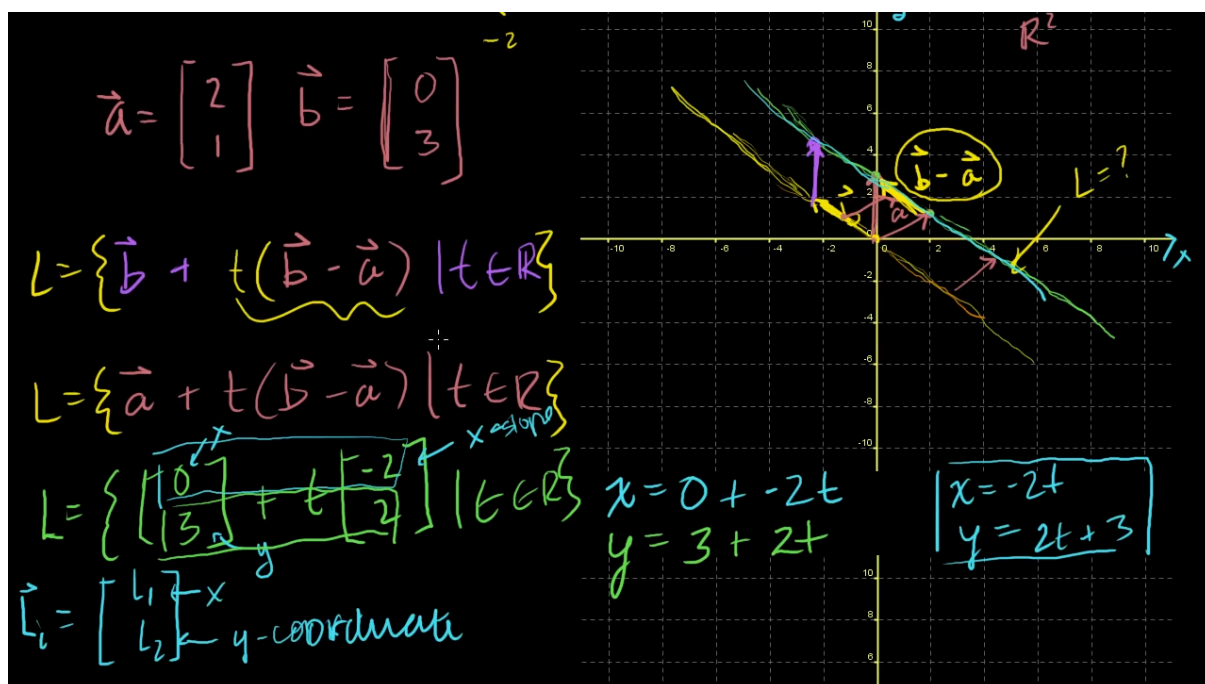 -2
a⃗ = [2 1] b⃗ = [0 3]
L = {b⃗ + t(b⃗ - a⃗) | t ∈ R}
L = {a⃗ + t(b⃗ - a⃗) | t ∈ R}
x x slope
L = {[[0 3] + t[-2 2]] | t ∈ R}
y
L⃗₁ = [L₁ L₂] ← x ← y-coordinate
R²
b⃗ - a⃗
L = ?
b⃗
a⃗
x
10
8
6
4
2
0
-10 -8 -6 -4 -2 0 2 4 6 8 10
-2
-4
-6
-8
-10
x = 0 + -2t
y = 3 + 2t
x = -2t
y = 2t + 3
10
8
6